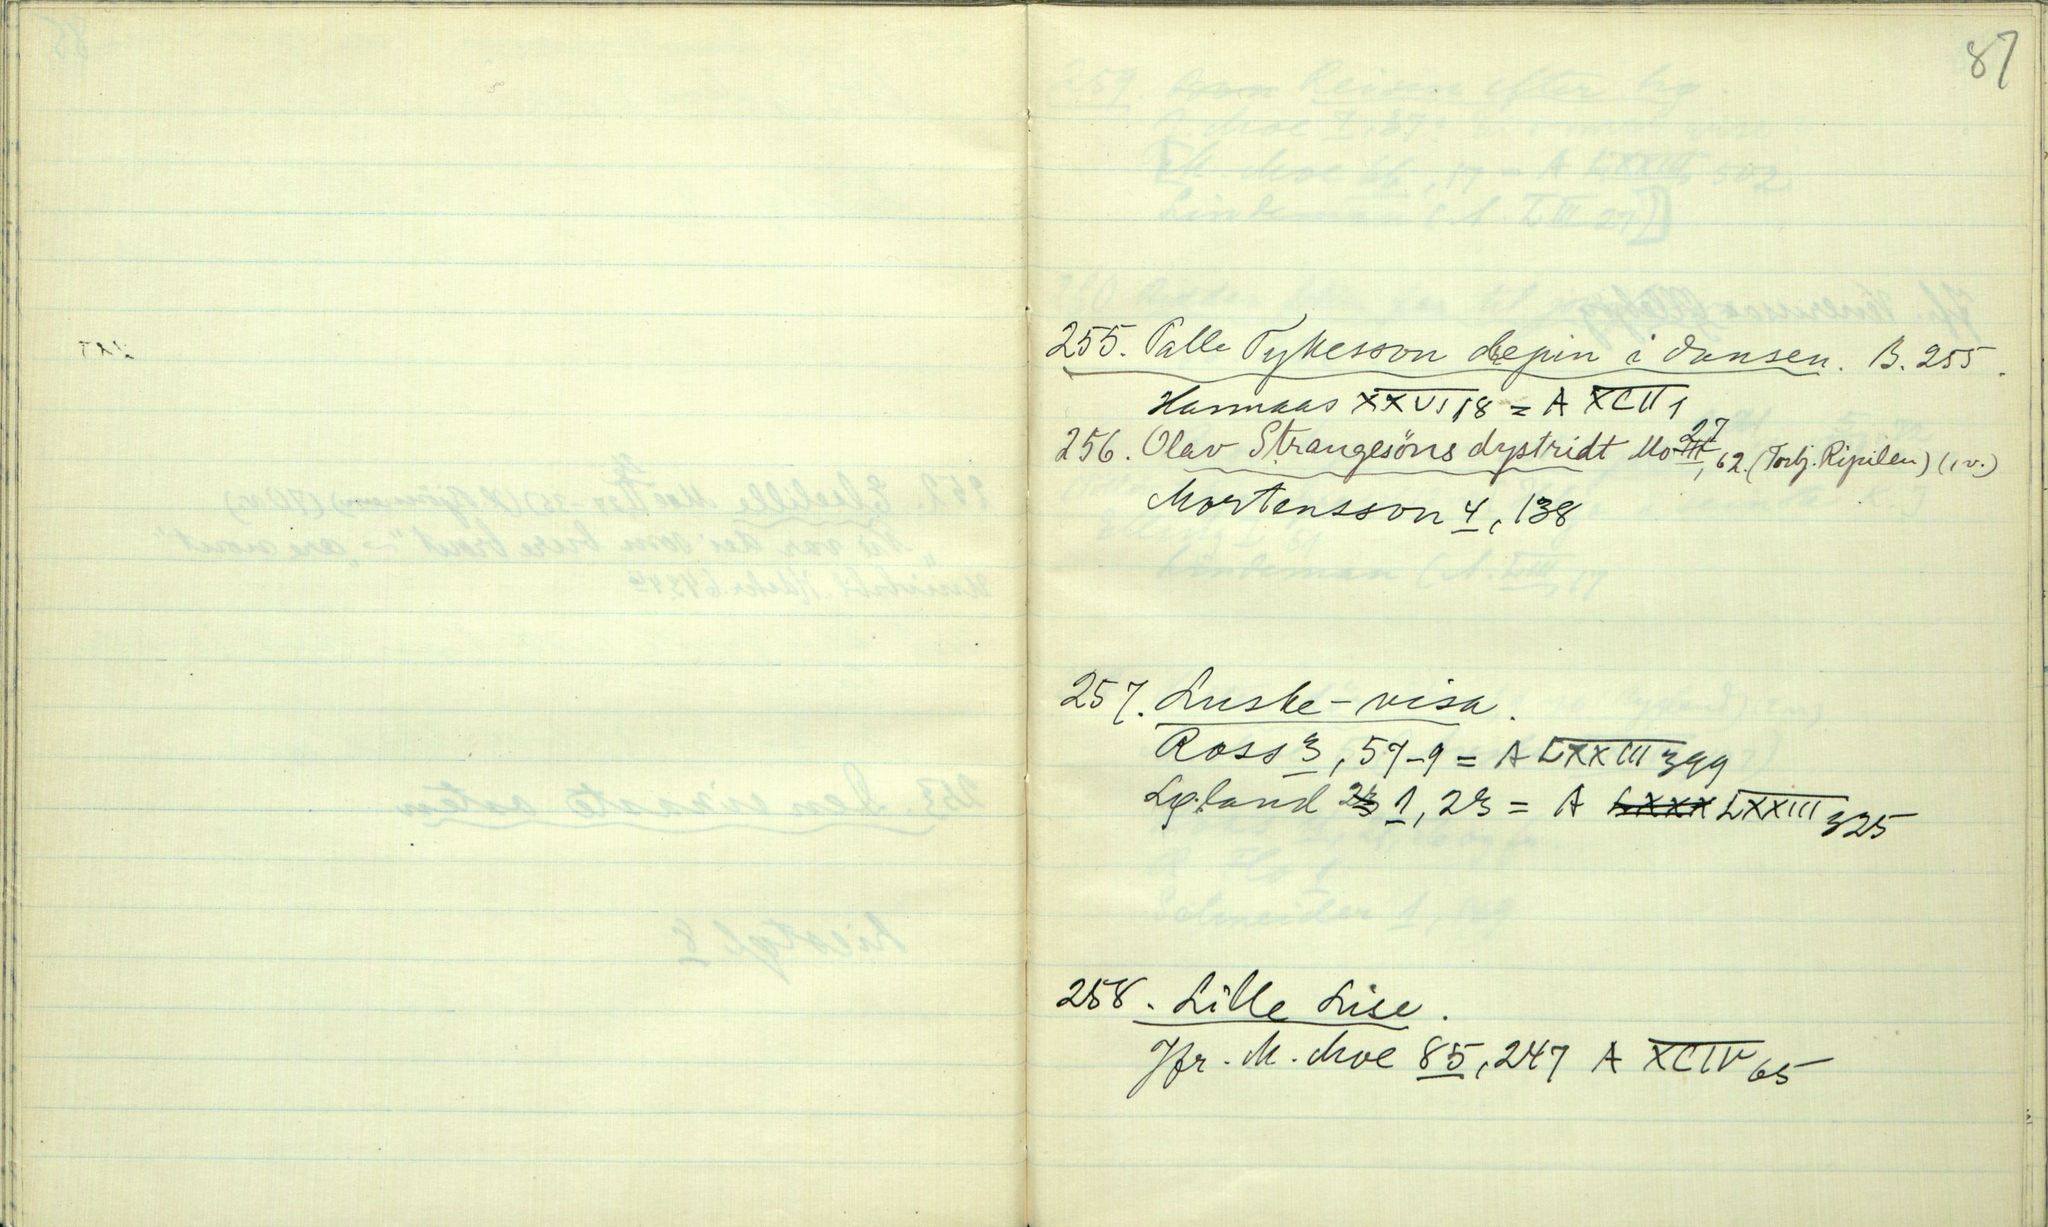 87
255. Palle Tykesson drepin i dansen. B. 255.
Hannaas XXVI 18 = A XCII 1
256. Olav Strangesöns dystridt Mo 27 III, 62. (Torbj. Ripilen) (1 v.)
Mortensson 4, 138
257. Luske-visa.
Ross 3, 57-9 = A LXXIII 399
Lø.land 23 1, 23 = A LXXX LXXIII 325
258. Lille Lise.
Jfr. M. Moe 85, 247 A XCIV 65